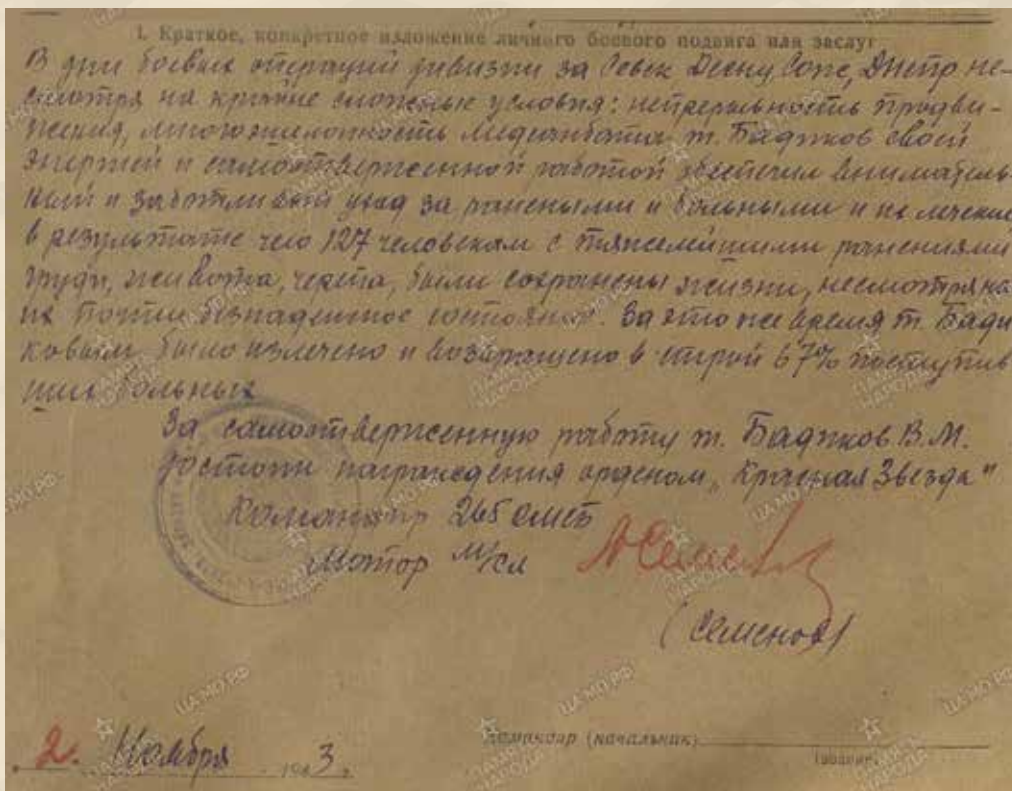 I. Краткое, конкретное изложение личного боевого подвига или заслуг
В дни боевых операций дивизии за Севск Десну, Сож, Днепр не-
смотря на крайне сложные условия: непрерывность продви-
жения, многоэшелонность медсанбата т. Баджков своей
энергией и самоотверженной работой обеспечил вниматель-
ный и заботливый уход за ранеными и больными и их лечение
в результате чего 127 человекам с тяжелейшими ранениями
груди, живота, черепа, были сохранены жизни, несмотря на
их почти безнадежное состояние. За это же время т. Бадж
ковым было излечено и возвращено в строй 67% поступив
ших больных
За самоотверженную работу т. Баджков В.М.
достоин награждения орденом „Красная Звезда"
Командир 265 омсб
Майор м/сл
(Семенов)
2. Ноября 1943 г.
Командир (начальник)
(звание)